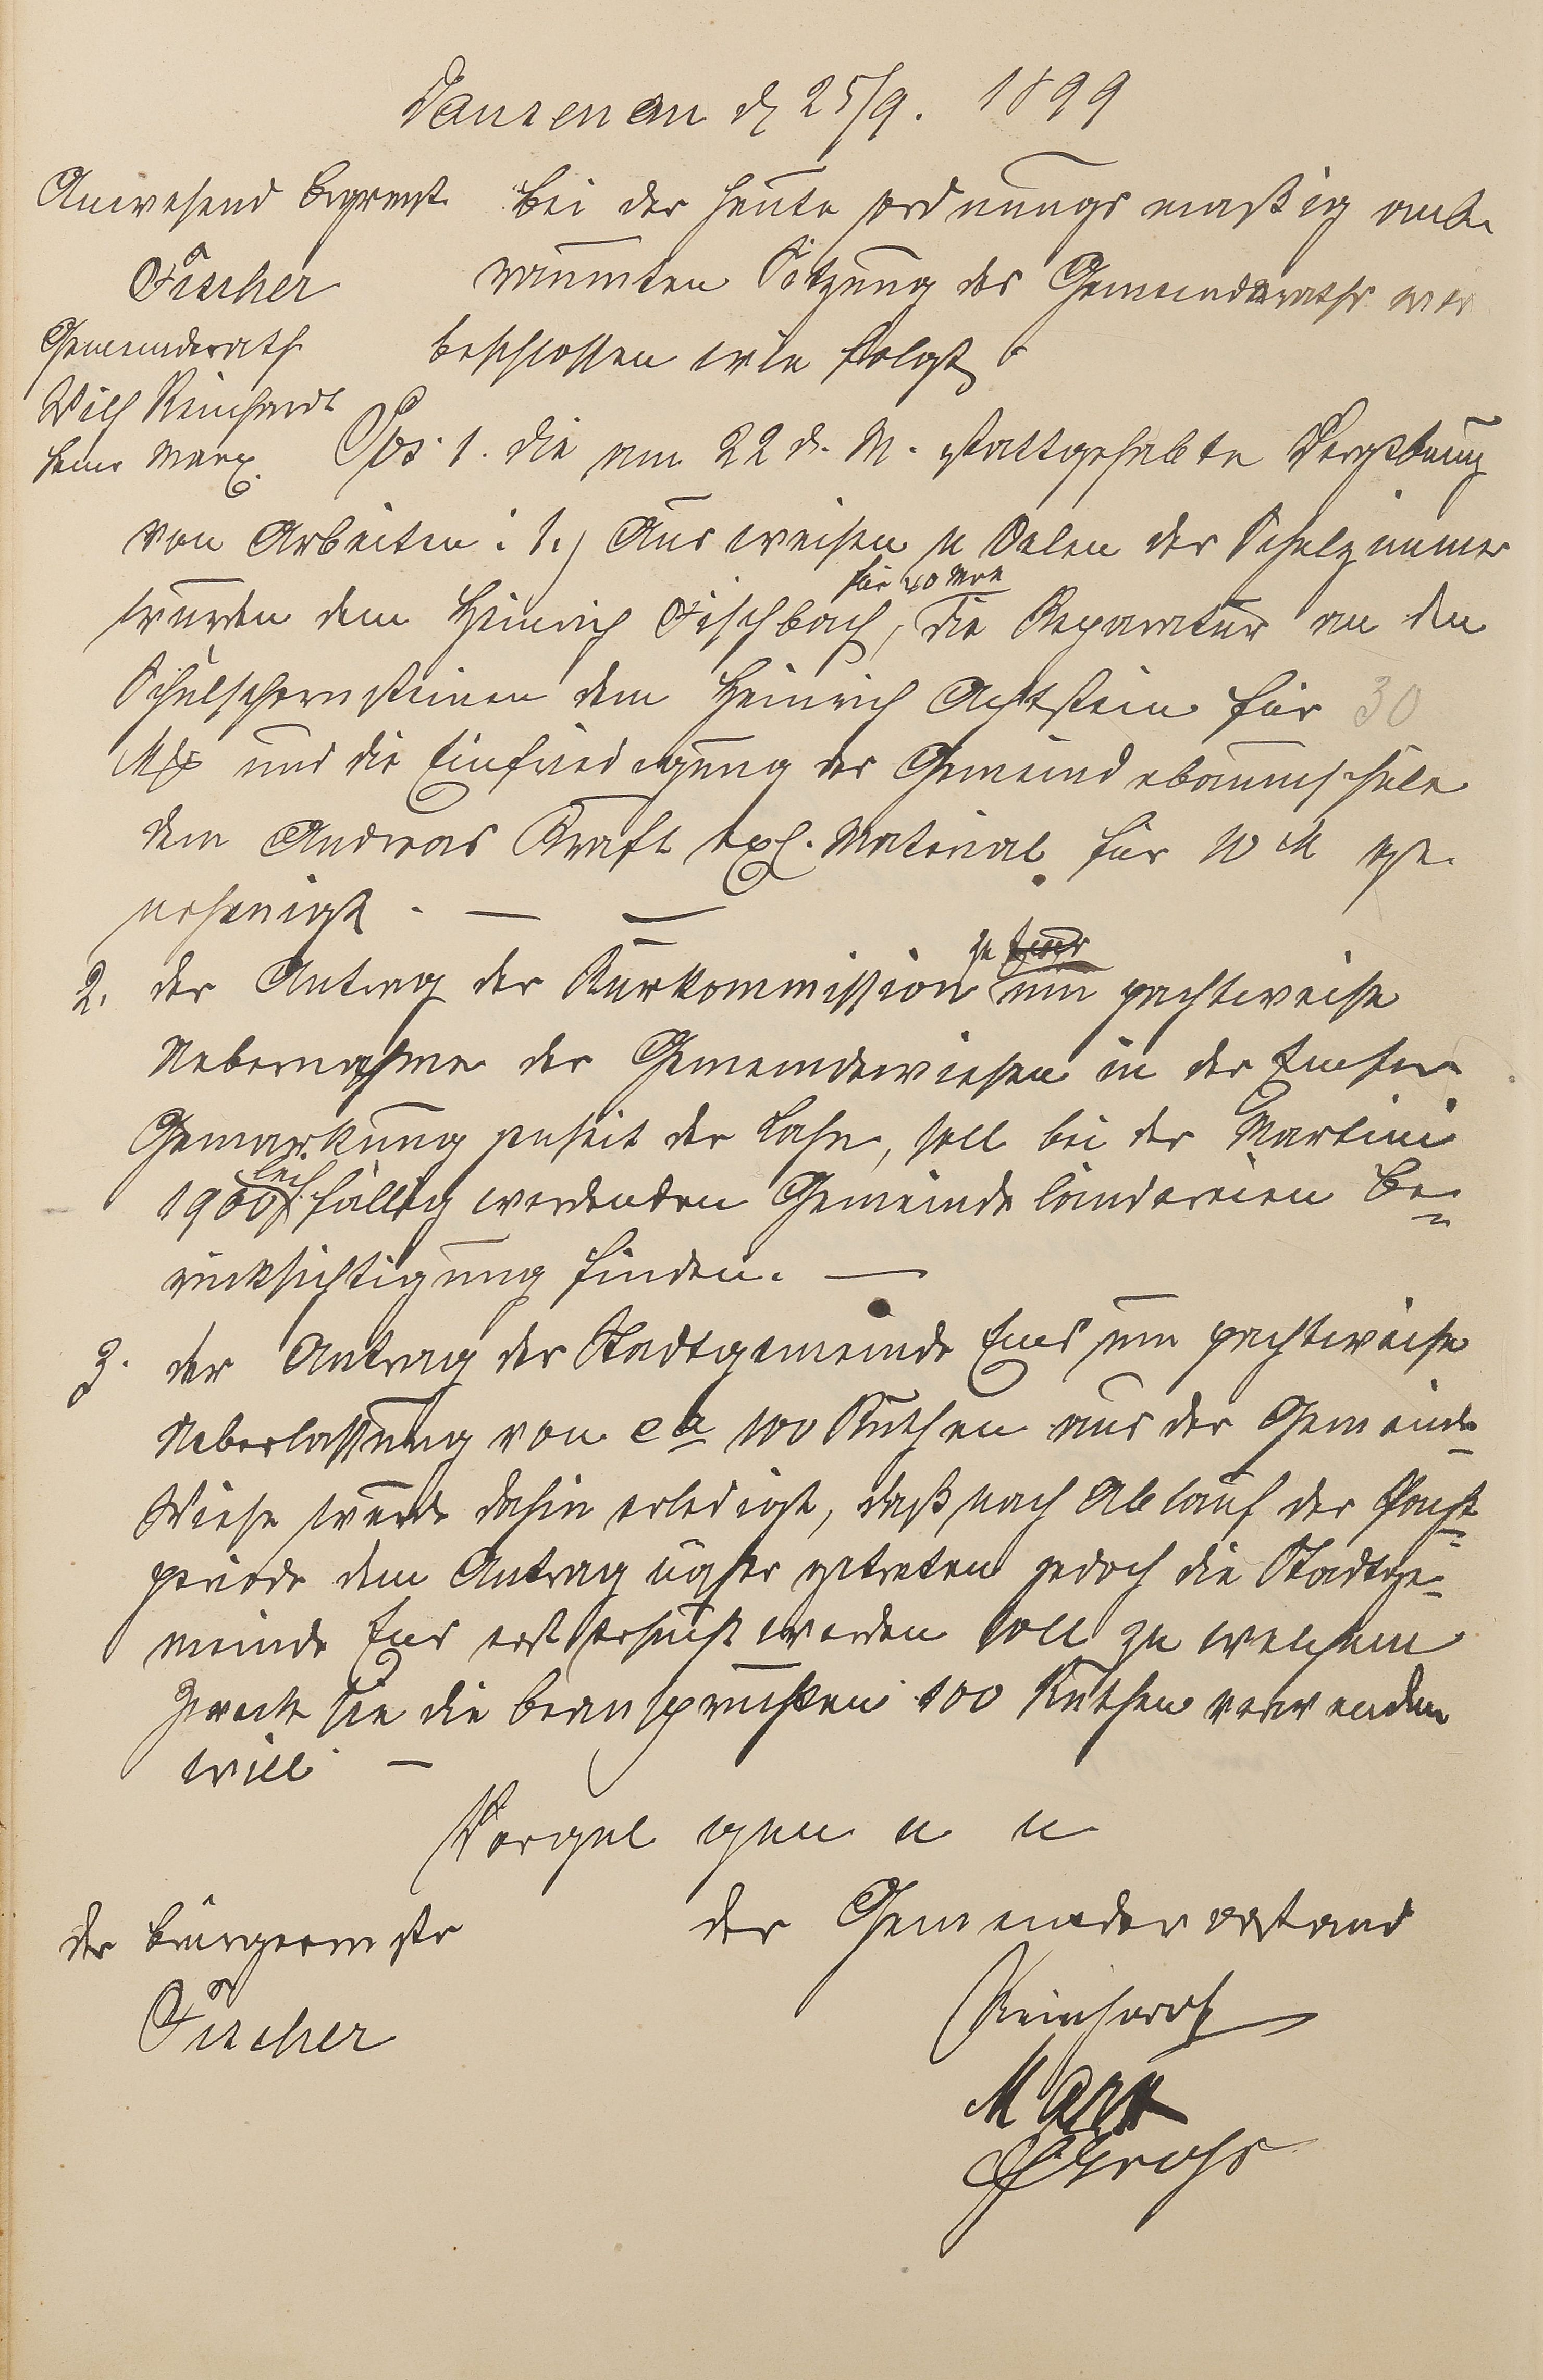 Dausenau d 25/9. 1899
Anwesend Bgrmst.
Fischer
Gemeinderath
Wilh Reinhardt
Heinr Marx.
Bei der heute ordnungsmäßig anbe
raumten Sitzung des Gemeinderaths wer
beschlossen wie folgt:
Pos. 1. Die am 22 d. M. stattgehabte Vergebung
von Arbeiten: 1.) Ausweisen u Oelen der Schulzimmer
für 40 Mrk
wurden dem Heinrich Fischbach, die Reparatur an den
Schulschornsteinen dem Heinrich Achtstein für 30
Mk und die Einfriedigung der Gemeindebaumschule
dem Andreas Kraft exl. Material für 10 M ge-
nehmigt. —
2. der Antrag der Kurkommission zu Ems um pachtweise
Uebernahme der Gemeindewiesen in der Emser
Gemarkung jenseit der Lahn, soll bei der Martini
1900 leihfällig werdenden Gemeinde ländereien Be=
rücksichtigung finden. —
3. der Antrag der Stadtgemeinde Ems um pachtweise
Ueberlassung von ca 100 Ruthen aus der Gemeinde
Wiese wurde dahin erledigt, daß nach Ablauf der Pacht=
periode dem Antrag näher getreten jedoch die Stadtge=
meinde Ems erst ersucht werden soll zu welchem
Zweck sie die beanspruchten 100 Ruthen verwenden
will. —
Vorgel gen u u
der Bürgermstr
Fischer
der Gemeindevorstand
Reinhardt
Marx